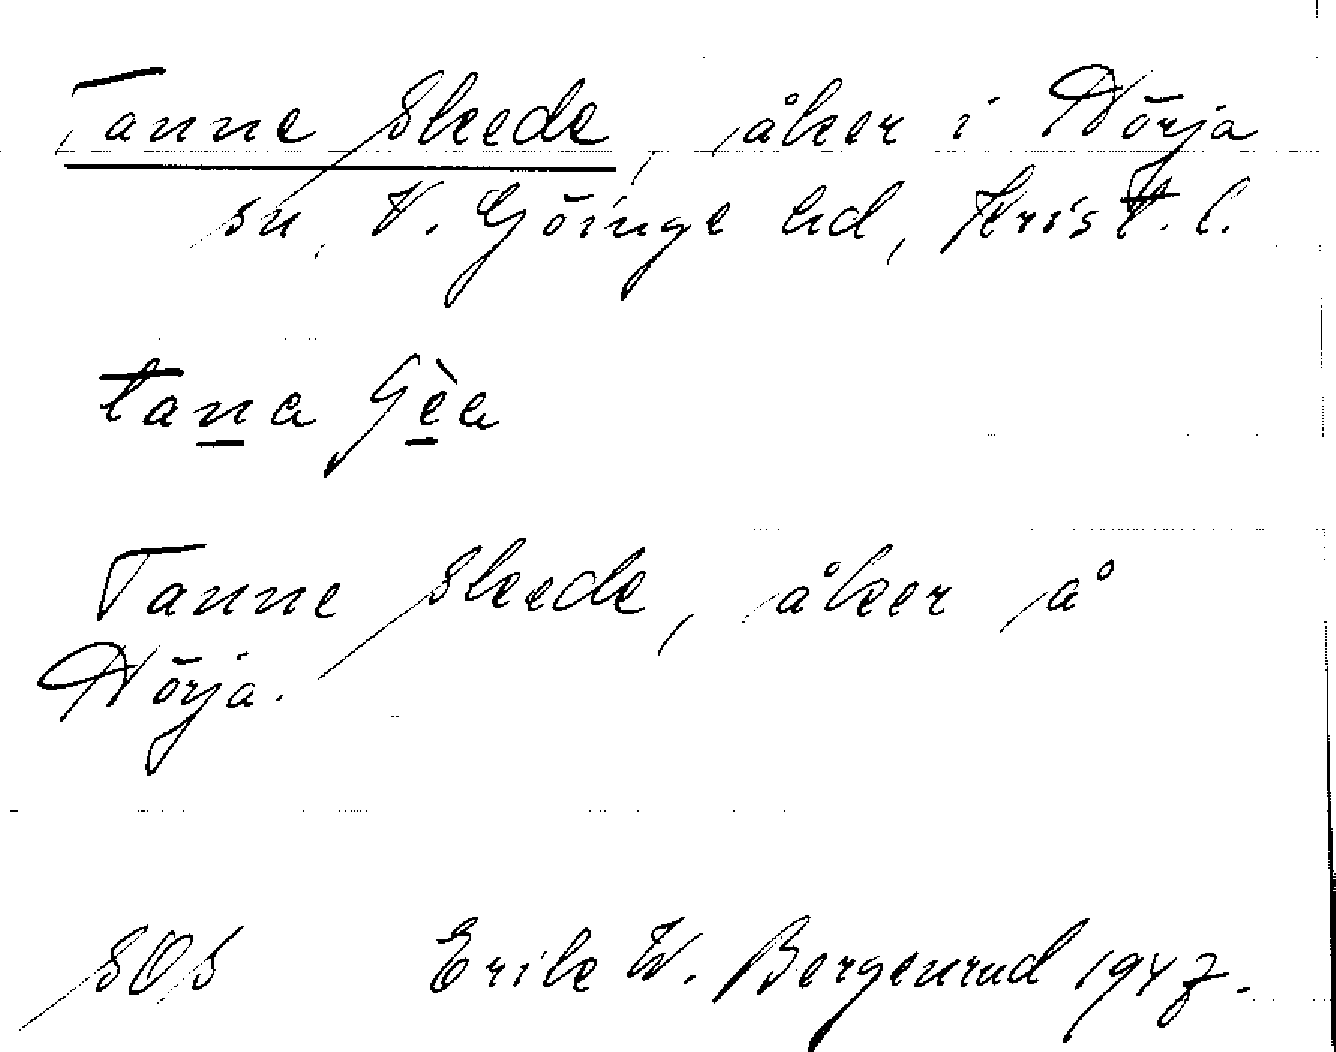 Tanne Skede, åker i Nörja
sn, V. Göinge hd, Krist. l.
tana
Tanne Skede, åker å
Nörja.
SOS Erik W. Bergenrud 1947.